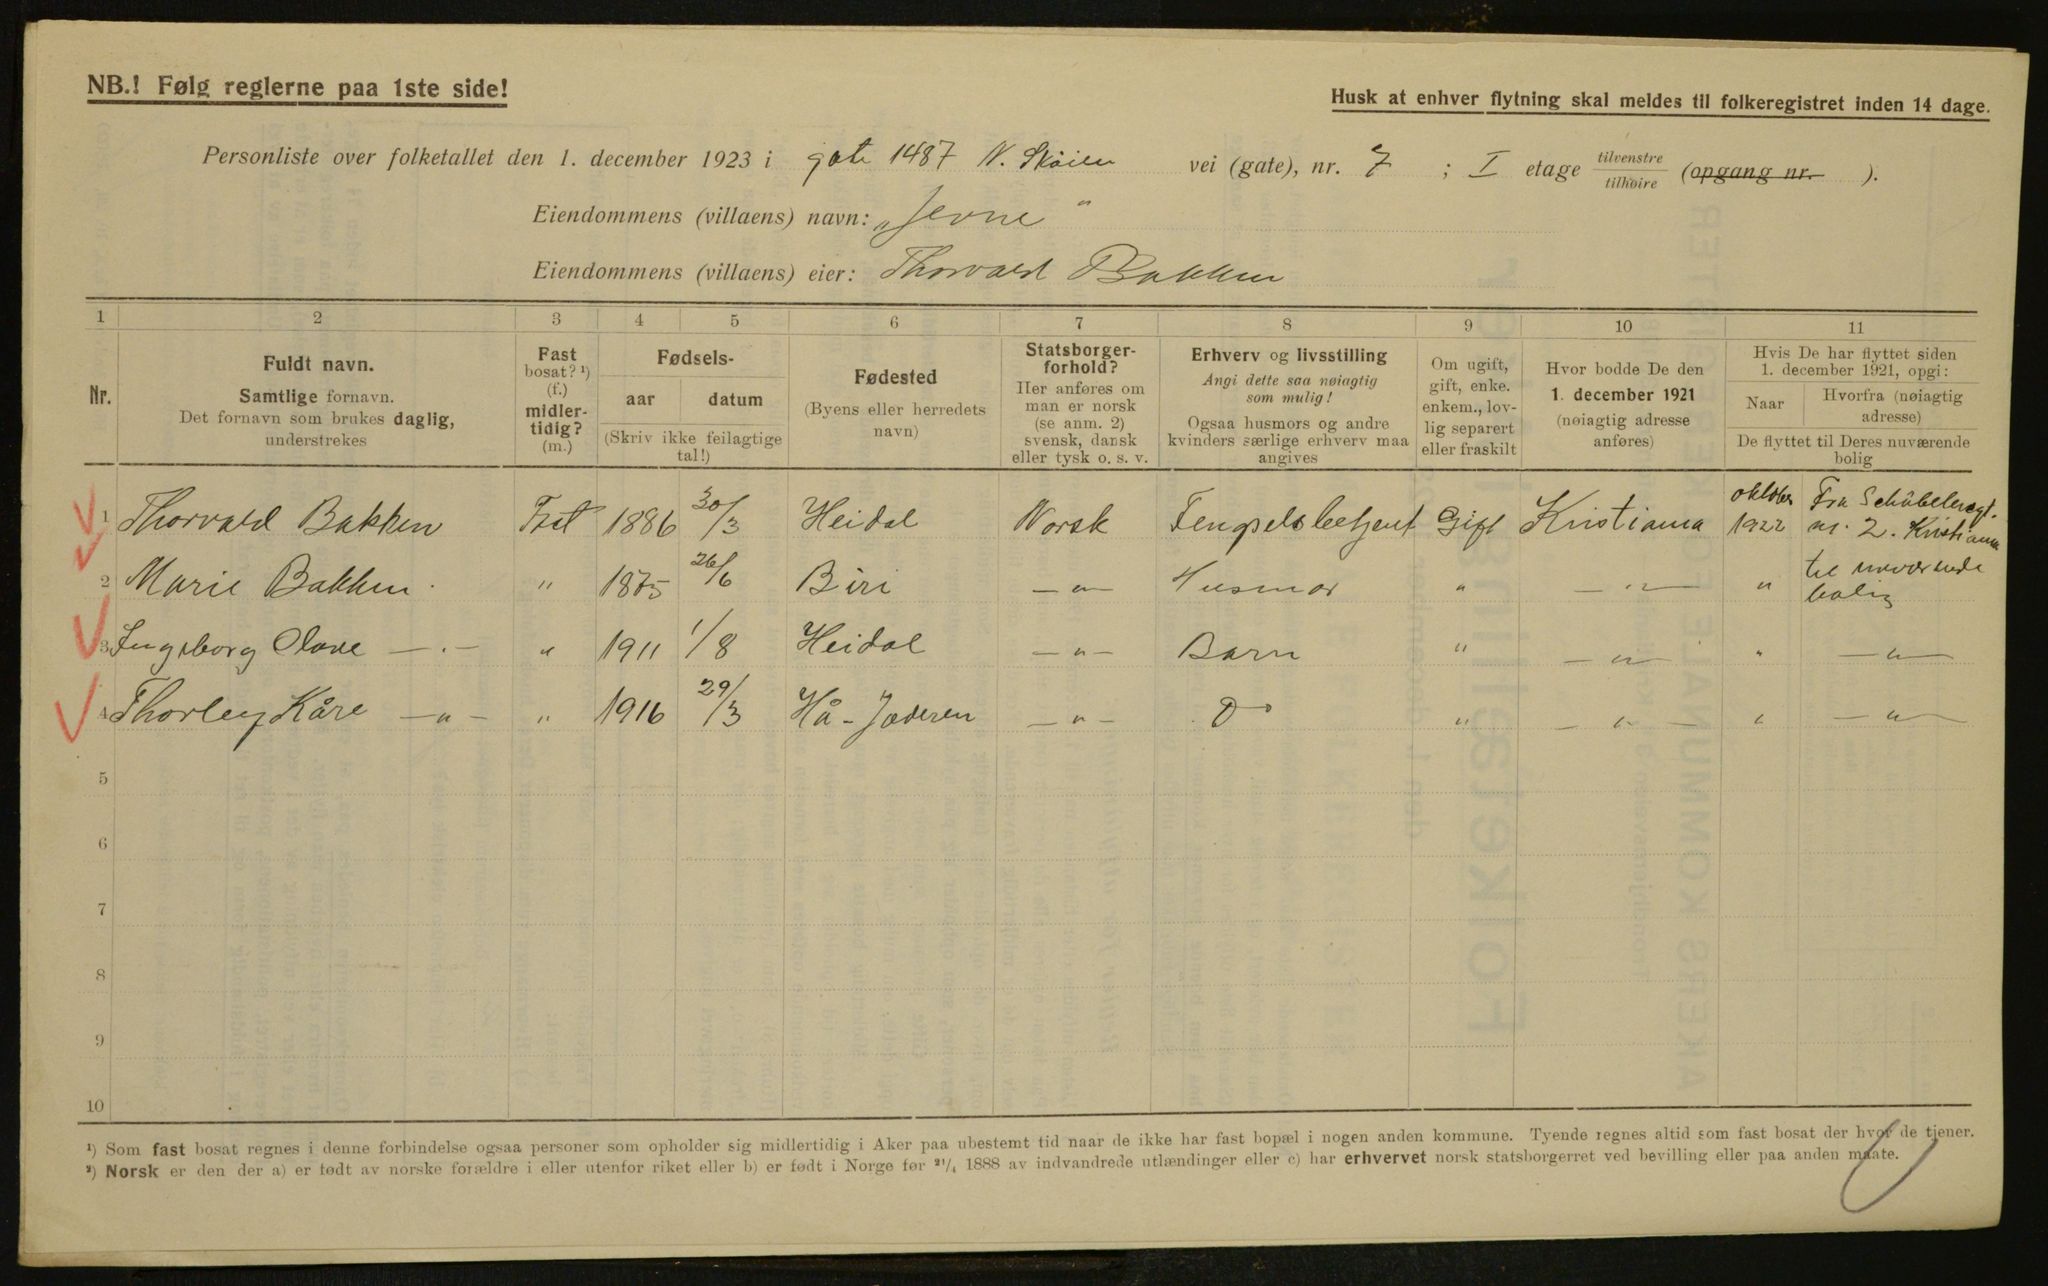 NB.! Følg reglerne paa 1ste side!
Husk at enhver flytning skal meldes til folkeregistret inden 14 dage.
Personliste over folketallet den 1. december 1923 i gate 1487 N. Skøien vei (gate), nr. 7 ; I etage tilvenstre / tilhøire (opgang nr. ).
Eiendommens (villaens) navn: „Jevne"
Eiendommens (villaens) eier: Thorvald Bakken
1 2 3 4 5 6 7 8 9 10 11
Nr.
Fuldt navn.
Samtlige fornavn.
Det fornavn som brukes daglig,
understrekes
Fast
bosat? ¹)
(f.)
midler-
tidig?
(m.)
Fødsels-
aar datum
(Skriv ikke feilagtige
tal!)
Fødested
(Byens eller herredets
navn)
Statsborger-
forhold?
Her anføres om
man er norsk
(se anm. 2)
svensk, dansk
eller tysk o. s. v.
Erhverv og livsstilling
Angi dette saa nøiagtig
som mulig!
Ogsaa husmors og andre
kvinders særlige erhverv maa
angives
Om ugift,
gift, enke.
enkem., lov-
lig separert
eller fraskilt
Hvor bodde De den
1. december 1921
(nøiagtig adresse
anføres)
Hvis De har flyttet siden
1. december 1921, opgi:
Naar
Hvorfra (nøiagtig
adresse)
De flyttet til Deres nuværende
bolig
1 Thorvald Bakken Fast 1886 30/3 Heidal Norsk Fengselsbetjent Gift Kristiania oktober 1922 Fra Schübelersgt. nr. 2. Kristiania
2 Marie Bakken. " 1875 26/6 Biri —"— Husmor " —"— " til nuværende bolig
3 Ingeborg Olave —"— " 1911 1/8 Heidal —"— Barn " —"— " —"—
4 Thorleif Kåre —"— " 1916 29/3 Hå - Jæderen —"— Do " —"— " —"—
5
6
7
8
9
10
¹) Som fast bosat regnes i denne forbindelse ogsaa personer som opholder sig midlertidig i Aker paa ubestemt tid naar de ikke har fast bopæl i nogen anden kommune. Tyende regnes altid som fast bosat der hvor de tjener.
²) Norsk er den der a) er født av norske forældre i eller utenfor riket eller b) er født i Norge før ²¹/₄ 1888 av indvandrede utlændinger eller c) har erhvervet norsk statsborgerret ved bevilling eller paa anden maate.